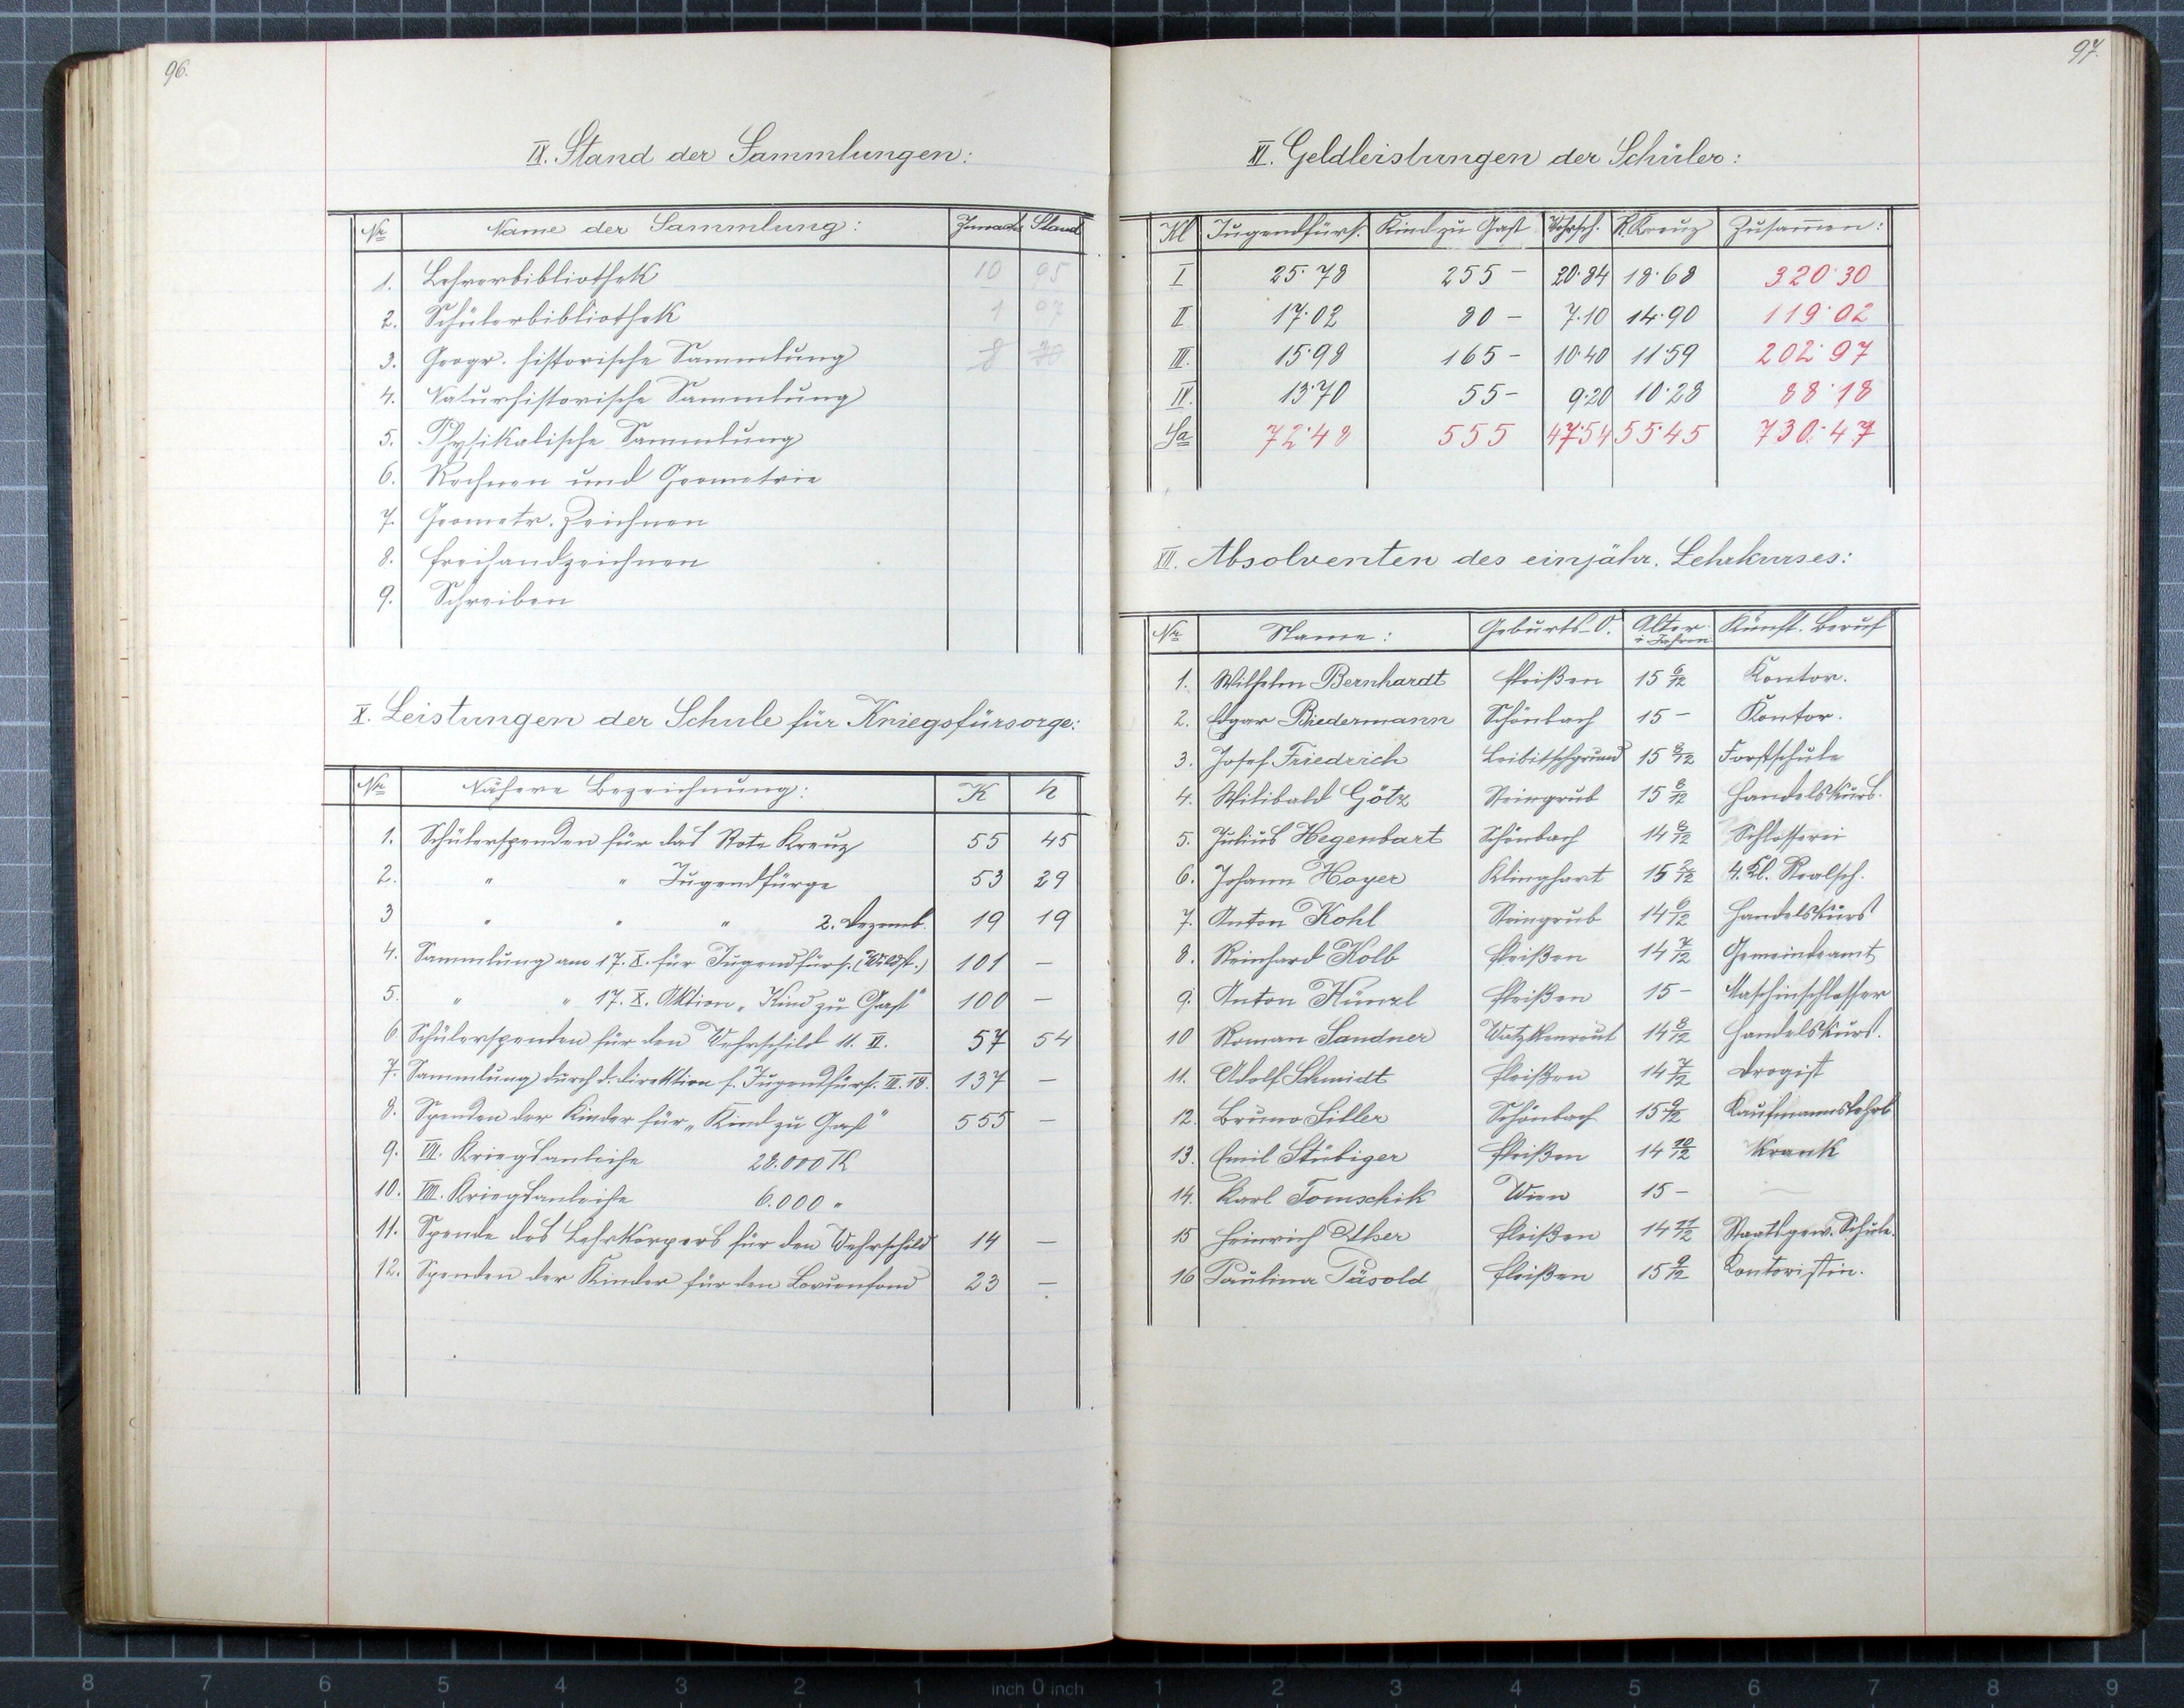 96.
IX. Stand der Sammlungen:
Nr Name der Sammlung: Zuwachs Stand
1. Lehrerbibliothek 10 95
2. Schülerbibliothek 1 97
3. Geogr. historische Sammlung
4. Naturhistorische Sammlung
5. Physikalische Sammlung
6. Rechnen und Geometrie
7. Geometr. Zeichnen
8. Freihandzeichnen
9. Schreiben
X. Leistungen der Schule für Kriegsfürsorge:
Nr Nähere Bezeichnung: K h
1. Schülerspenden für das Rote Kreuz 55 45
2. " " Jugendfürge 53 29
3 " " " 2. Dezemb. 19 19
4. Sammlung am 17. X. für Jugendfürs. (Wildst.) 101 —
5. " " 17. X. Aktion „Kind zu Gast" 100 —
6 Schülerspenden für den Wehrschild 11. XI. 57 54
7. Sammlung durch d. Direktion f. Jugendfürs. III. 18. 137 —
8. Spenden der Kinder für „Kind zu Gast" 555 —
9. VII. Kriegsanleihe 28.000 K
10. VIII. Kriegsanleihe 6.000 "
11. Spende des Lehrkörpers für den Wehrschild 14 —
12. Spenden der Kinder für den 23 —
97.
XI. Geldleistungen der Schüler:
Kl Jugendfürs. Kind zu Gast Wehrsch. R. Kreuz Zusammen:
I 25·78 255 — 20·84 18·68 320·30
II 17·02 80 — 7·10 14·90 119·02
III. 15·98 165 — 10·40 11·59 202·97
IV. 13·70 55 — 9·20 10·28 88·18
Sa 72·48 555 47·54 55·45 730·47
XII. Absolventen des einjähr. Lehrkurses:
Nr Name: Geburts-O. Alter i. Jahren Künft. Beruf
1. Wilhelm Bernhardt Fleißen 15 6/12 Kontor.
2. Edgar Biedermann Schönbach 15 — Kontor.
3. Josef Friedrich Leibitschgrund 15 8/12 Forstschule
4. Wilibald Götz Steingrub 15 8/12 Handelskurs.
5. Julius Hegenbart Schönbach 14 8/12 Schlosserei
6. Johann Hoyer Klinghart 15 2/12 4. Kl. Realsch.
7. Anton Kohl Steingrub 14 6/12 Handelskurs
8. Reinhard Kolb Fleißen 14 7/12 Gemeindeamt
9. Anton Künzl Fleißen 15 — Maschinschlosser
10 Roman Sandner Watzkenreut 14 8/12 Handelskurs.
11. Adolf Schmidt Fleißen 14 7/12 Drogist
12. Bruno Siller Schönbach 15 9/12 Kaufmannslehrl
13. Emil Stübiger Fleißen 14 10/12 Krank
14. Karl Tomschik Wien 15 — —
15 Heinrich Fleißen 14 11/12 Staatsgew. Schule.
16 Paulina Päsold Fleißen 15 9/12 Kontoristin.
inch 0 inch
8 7 6 5 4 3 2 1 1 2 3 4 5 6 7 8 9